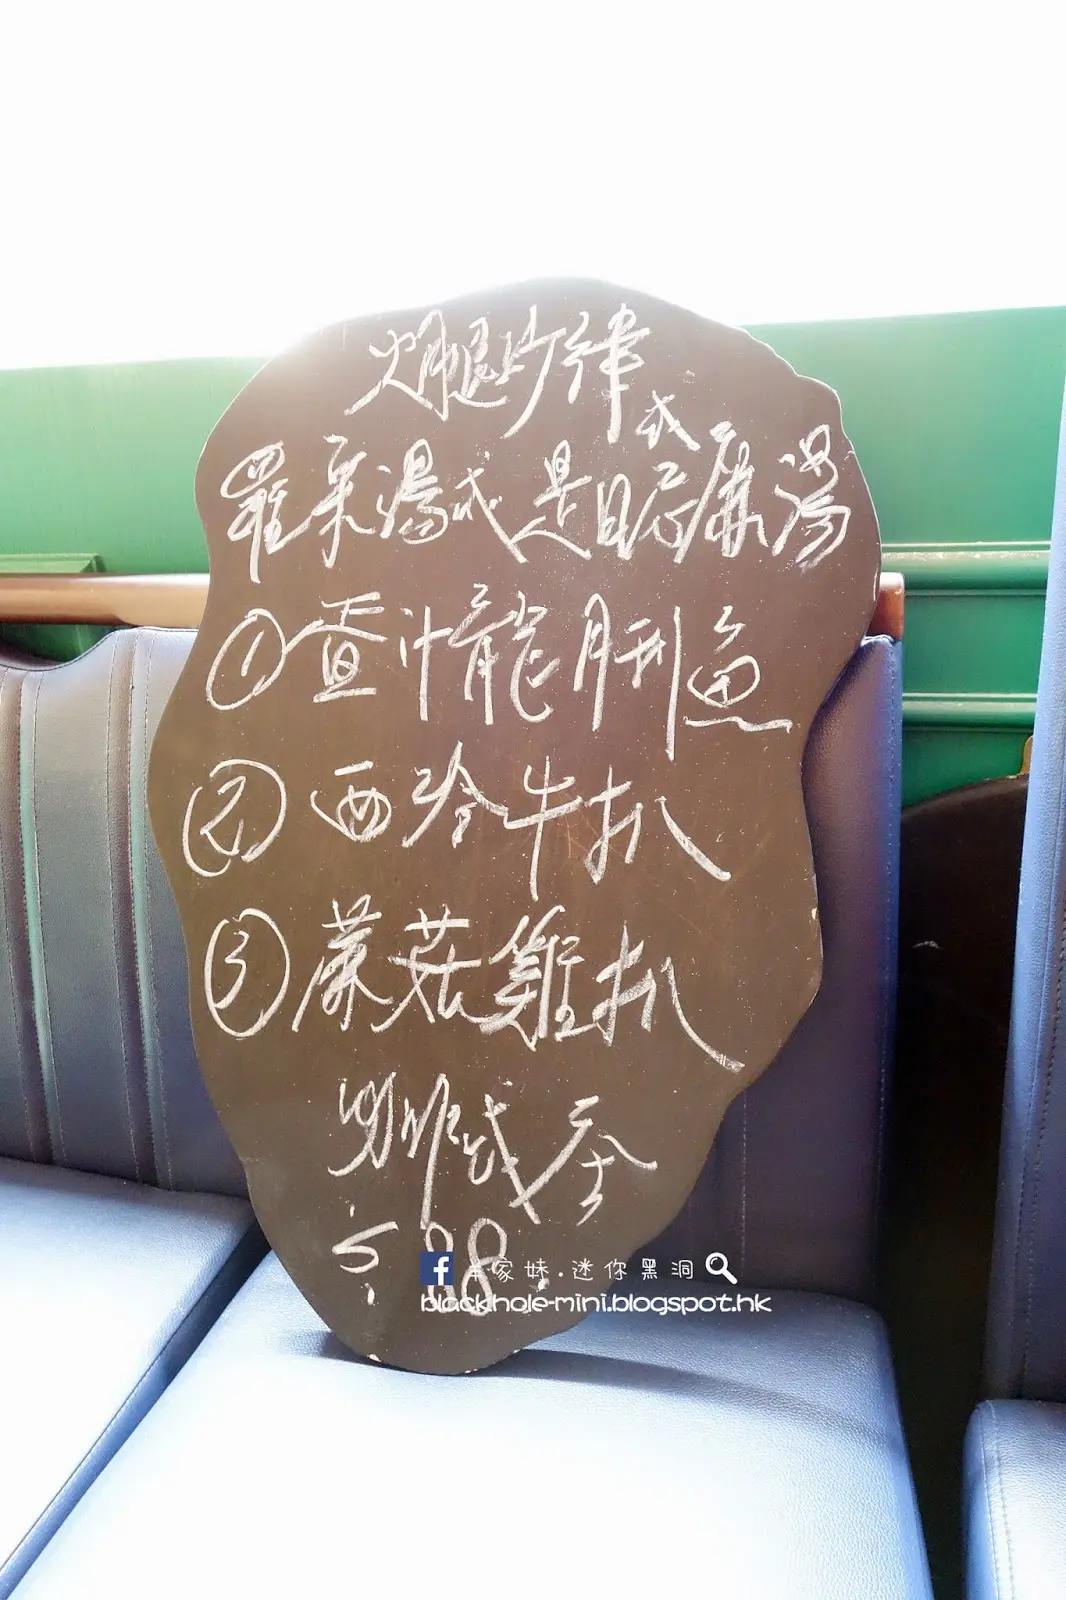 火腿沙律
或
羅宋湯或是日忌廉湯
① 香汁龍脷魚
② 西冷牛扒
③ 蘑菇雞扒
咖啡或茶
$88
家妹.迷你黑洞
blackhole-mini.blogspot.hk